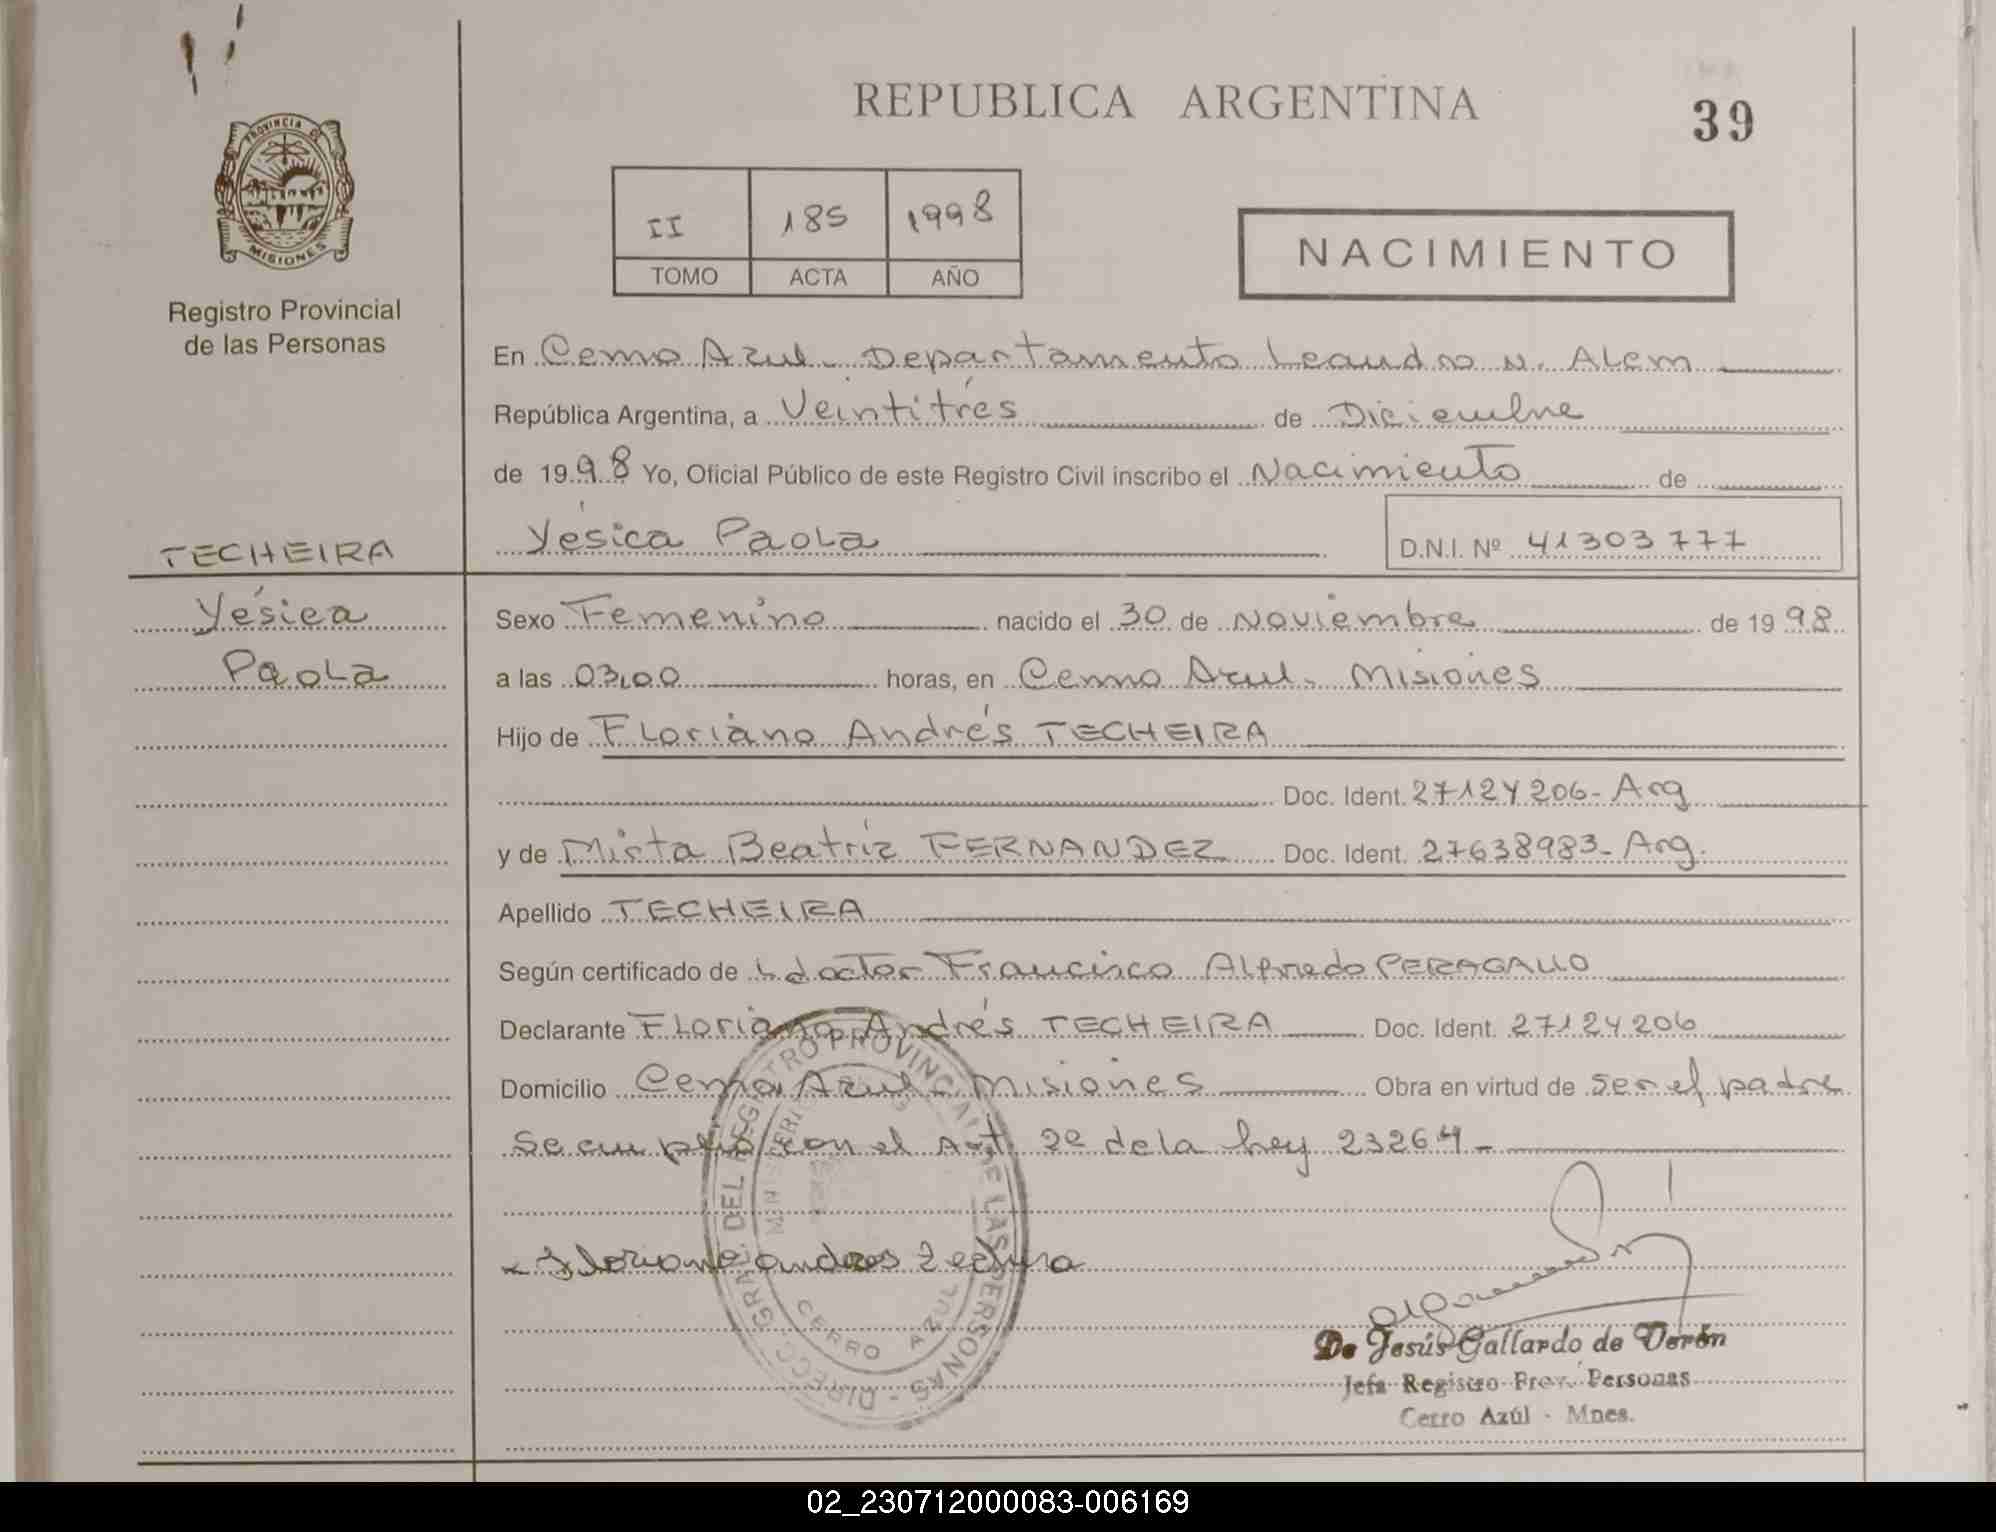 REPUBLICA ARGENTINA
39
PROVINCIA DE
MISIONES
Registro Provincial
de las Personas
II 185 1998
TOMO ACTA AÑO
NACIMIENTO
En Cerro Azul. Departamento Leandro N. Alem
República Argentina, a Veintitrés de Diciembre
de 1998 Yo, Oficial Público de este Registro Civil inscribo el Nacimiento de
Yésica Paola D.N.I. Nº 41303777
TECHEIRA
Yésica
Paola
Sexo Femenino nacido el 30 de Noviembre de 1998
a las 03,00 horas, en Cerro Azul. Misiones
Hijo de Floriano Andrés TECHEIRA
Doc. Ident. 27124206- Arg
y de Mirta Beatriz FERNANDEZ Doc. Ident. 27638983- Arg.
Apellido TECHEIRA
Según certificado de L doctor Francisco Alfredo PERAGALLO
Declarante Floriano Andrés TECHEIRA Doc. Ident. 27124206
Domicilio Cerro Azul Misiones Obra en virtud de ser el padre
Se cumplió con el Art. 2º de la Ley 23264-
DIRECC. GRAL. DEL REGISTRO PROVINCIAL DE LAS PERSONAS -
CERRO AZUL
Floriano andres
De Jesús Gallardo de Verón
Jefa Registro Prov. Personas
Cerro Azúl - Mnes.
02_230712000083-006169